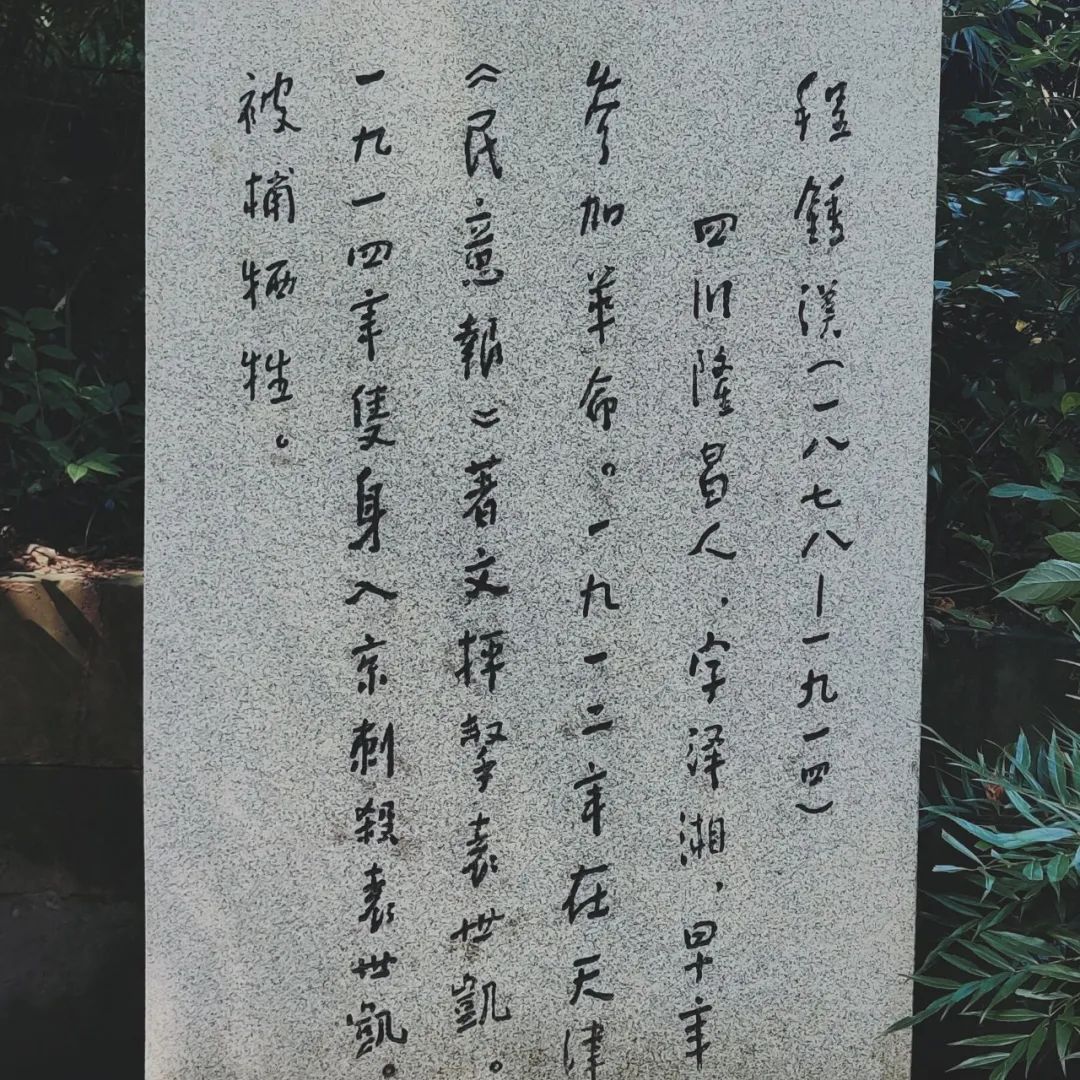 程鍾漢（一八七八—一九一四）
四川隆昌人，字泽湘，早年
参加革命。一九一二年在天津
《民意報》著文抨擊袁世凱。
一九一四年隻身入京刺殺袁世凱。
被捕牺牲。